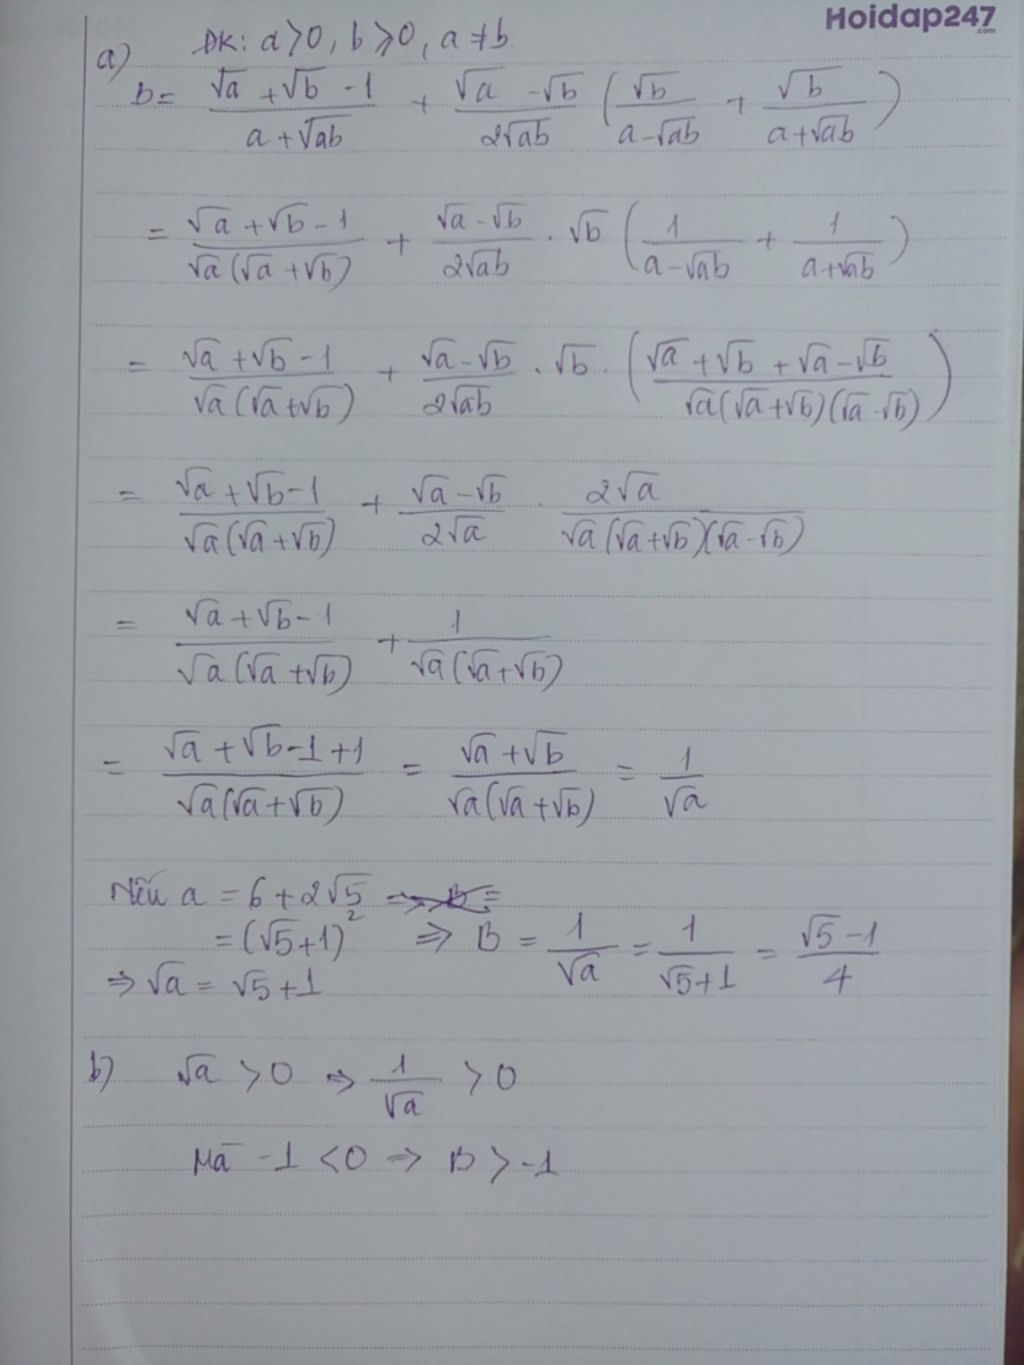 Hoidap247
.com
a) ĐK: a>0, b⩾0, a≠b
B= (√a +√b -1)/(a+√ab) + (√a -√b)/(2√ab) (√b/(a-√ab) + √b/(a+√ab))
= (√a +√b -1)/(√a(√a+√b)) + (√a-√b)/(2√ab) . √b (1/(a-√ab) + 1/(a+√ab))
= (√a +√b -1)/(√a(√a+√b)) + (√a-√b)/(2√ab) . √b . ((√a +√b +√a -√b)/(√a(√a+√b)(√a-√b)))
= (√a+√b-1)/(√a(√a+√b)) + (√a-√b)/(2√a) . 2√a/(√a(√a+√b)(√a-√b))
= (√a+√b-1)/(√a(√a+√b)) + 1/(√a(√a+√b))
= (√a+√b-1+1)/(√a(√a+√b)) = (√a+√b)/(√a(√a+√b)) = 1/√a
Nếu a = 6+2√5
= (√5+1)² ⇒ B = 1/√a = 1/(√5+1) = (√5-1)/4
⇒ √a = √5+1
b) √a >0 ⇒ 1/√a >0
Mà -1 <0 ⇒ B > -1